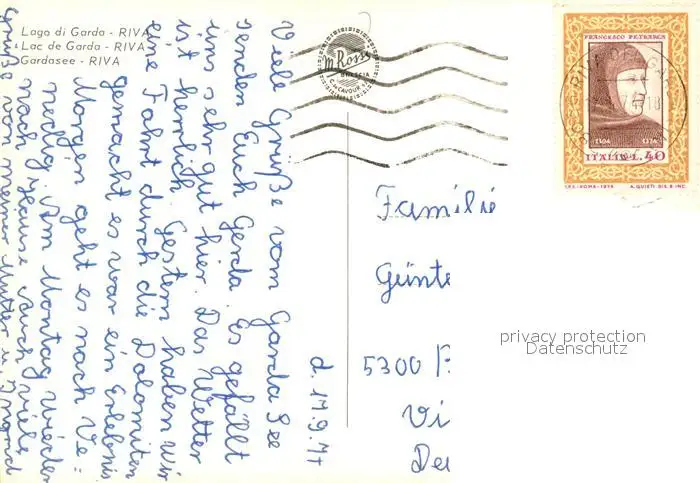 Lago di Garda - RIVA
Lac de Garda - RIVA
Gardasee - RIVA
m. Rossi
BRESCIA
C. CAVOUR
FRANCESCO PETRARCA
1304 1374
ITALIA L. 40
I.P.S. - ROMA - 1974 A. QUIETI DIS. E INC.
d. 17.9.74
Viele Grüße vom Garda See
senden Euch Gerda. Es gefällt
uns sehr gut hier. Das Wetter
ist herrlich. Gestern haben wir
eine Fahrt durch die Dolomiten
gemacht es war ein Erlebnis
Morgen geht es nach Ve=
nedig. Am Montag wieder
nach Hause. Auch viele
Grüße von meiner Mutter u.
Familie
Günte
5300
Vi
privacy protection
Datenschutz